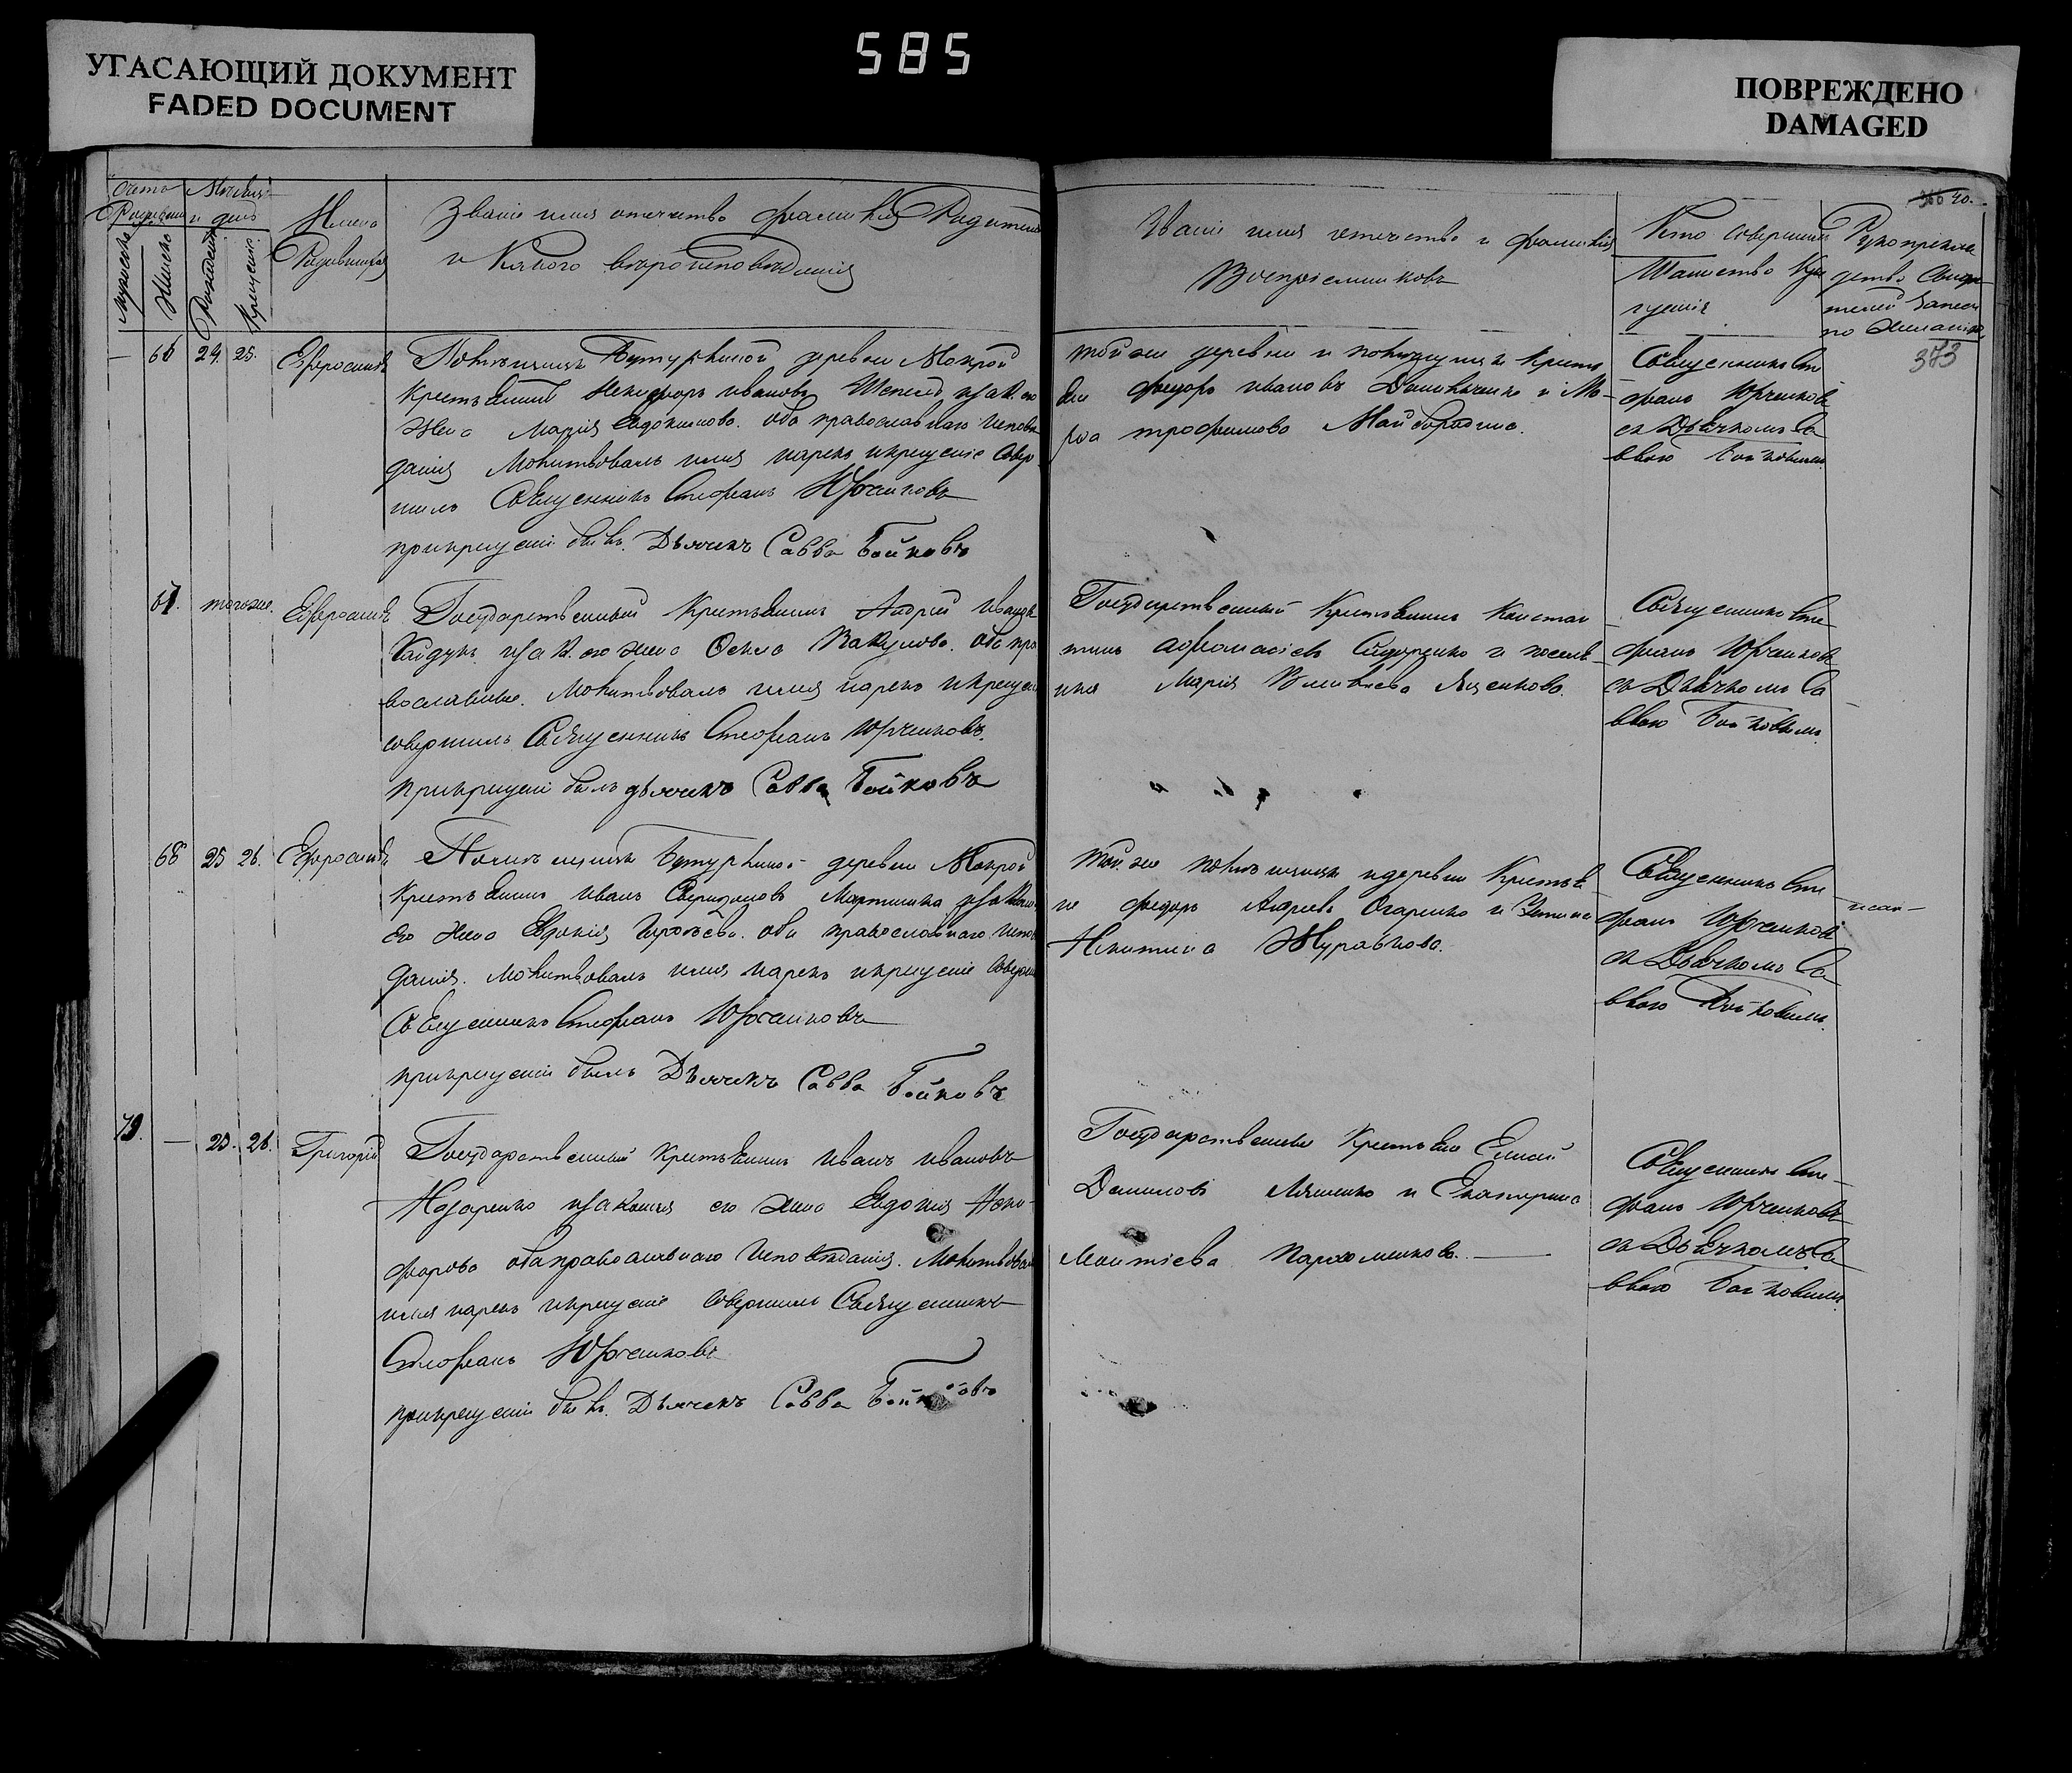 УГАСАЮЩИЙ ДОКУМЕНТ
FADED DOCUMENT
585
ПОВРЕЖДЕНО
DAMAGED
Счетъ
Родившихся
Месяцъ
и день
мужеска
Женска
Рожденія
Крещенія
Имена
Родившихся
Званіе имя отечество фамилія Родителей
и Какого вероисповеданія
Званіе имя отечество и фамилія
Воспріемниковъ
Кто совершалъ
Таинство Кре
щенія
Рукоприклад
ство Свиде
телей записи
по желанію
366 40.
373
66 24. 25. Ефросинія
Помещицы Бутурлиной деревни Мокрой
Крестьянинъ Никифоръ Ивановъ
Жена Марія Евдокимова. оба православнаго испове
данія Молитвовалъ имя нарекъ и крещеніе Совер
шилъ Священникъ Стефанъ Юрченковъ
при крещеніи былъ. Дьячекъ Савва Бойковъ
той же деревни и помещицы Крестья
не Федоръ Ивановъ и Ма
ра Трофимова Майбородина.
Священникъ Сте
фанъ Юрченковъ
съ Дьячкомъ Са
ввою Бойковымъ
67. того же. Ефросинія
Государственный Крестьянинъ Андрей Ивановъ
Гайдукъ. и зак. его жена Вакулова. оба пра
вославные. Молитвовалъ имя нарекъ и крещеніе
совершилъ Священникъ Стефанъ Юрченковъ.
при крещеніи былъ дьячекъ Савва Бойковъ
Государственный Крестьянинъ Констан
тинъ Афонасіевъ Сидоренко и поселя
нка Марія Яценкова.
Священникъ Сте
фанъ Юрченковъ
съ Дьячкомъ Са
ввою Бойковымъ.
68 25 26. Ефросинія
Помещицы Бутурлиной деревни Мокрой
Крестьянинъ Иванъ Спиридоновъ Мартышка и закон.
Его жена Евдокія оба православнаго испов
данія. Молитвовалъ имя нарекъ и крещеніе Соверши
Священникъ Стефанъ Юрченковъ
при крещеніи былъ Дьячекъ Савва Бойковъ
Той же помещицы и деревни Крестья
не Федоръ Андреевъ Огаренко и
Никитина Журавкова.
Священникъ Сте
фанъ Юрченковъ
съ Дьячкомъ Са
ввою Бойковымъ.
79. — 25. 26. Григорій
Государственный Крестьянинъ Иванъ Ивановъ
Назаренко и законная его жена Евдокія Ники
форова оба православнаго Исповеданія. Молитвовалъ
имя нарекъ и крещеніе Совершилъ Священникъ
Стефанъ Юрченковъ
при крещеніи былъ. Дьячекъ Савва Бойковъ
Государственные Крестьяне
Даниловъ Ляшенко и Екатерина
Моитіева Пархоменкова.
Священникъ Сте
фанъ Юрченковъ
съ Дьячкомъ Са
ввою Бойковымъ.